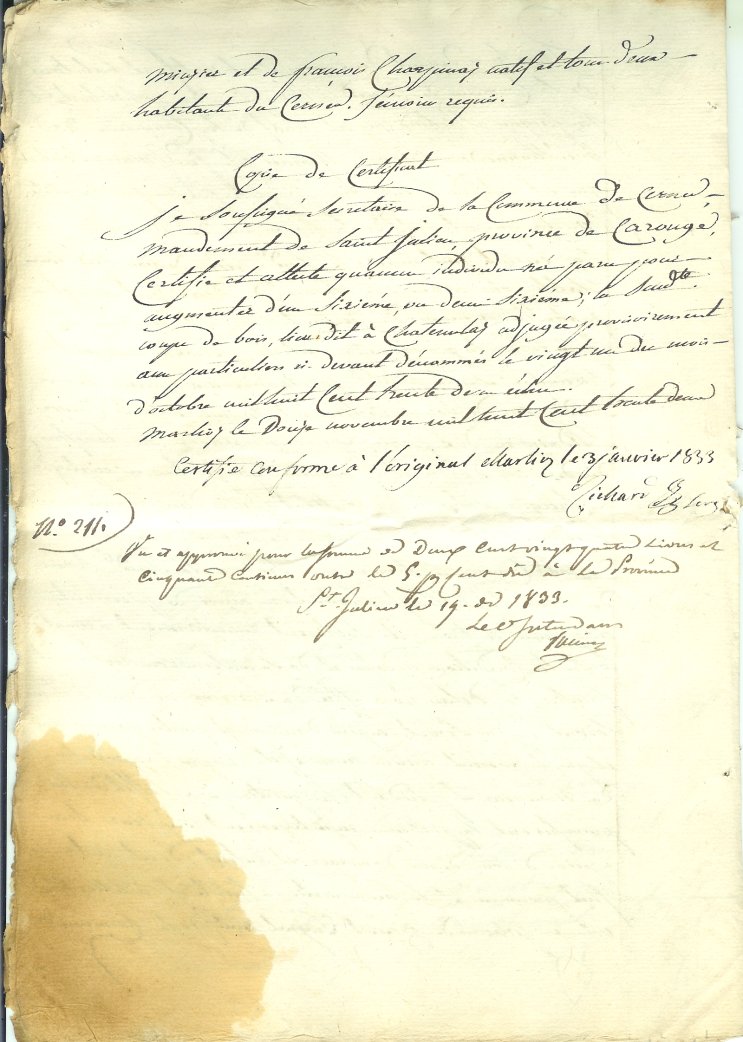 et de françois Charpinaz natif et tous deux
habitants du Cernex. témoins requis.
Copie de Certificat
je soussigné Secretaire de la Commune de Cernex
mandement de Saint Julien, province de Carouge,
Certifie et atteste qu'aucun individu n'a paru pour
augmenter d'un Sixieme, ou demi Sixieme, la Susdte
coupe de bois, lieu dit à Chatenulaz adjugée provisoirement
aux particuliers ci devant dénommés le vingt un du mois
d'octobre mil huit Cent trente deux
Marlioz le Douze novembre mil huit Cent trente deux
Certifié conforme à l'original Marlioz le 3 janvier 1833
Richard
N.º 211.
Vu et approuvé pour la somme de Deux Cent vingt quatre Livres et
Cinquante Centimes outre le 5. p% à la Province
St. Julien le 19. 1833.
L'Intendant